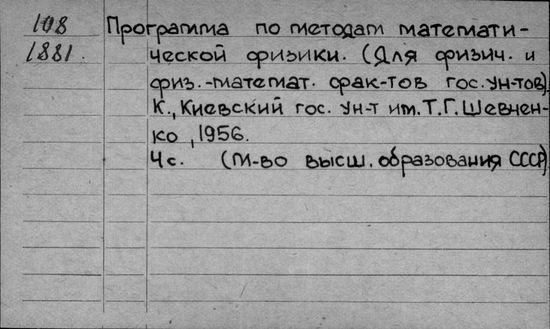 108 Программа по методам математи-
1881. ческой физики. (Для физич. и
физ.-математ. фак-тов гос. ун-тов).
К., Киевский гос. ун-т им. Т.Г. Шевчен-
ко, 1956.
4с. (М-во высш. образования СССР)